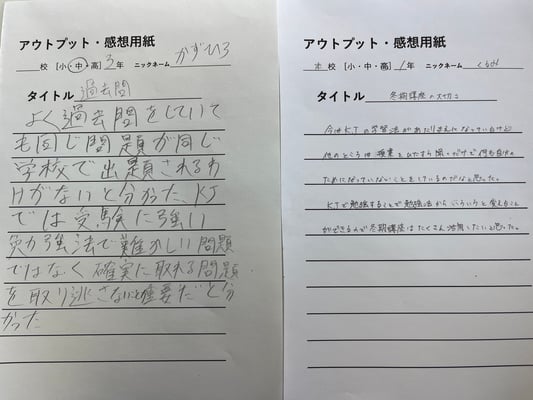 アウトプット・感想用紙
校 [小・中・高] 3年 ニックネーム かずひろ
タイトル 過去問
よく過去問をしていて
も同じ問題が同じ
学校で出題されるわ
けがないと分かった、KJ
では受験に強い
勉強法で難しい問題
ではなく確実に取れる問題
を取り逃さない 重要だと分
かった
アウトプット・感想用紙
校 [小・中・高] 1年 ニックネーム
タイトル 冬期講座の大切さ
今はKJの学習法があたりまえになっているけど
他のところは授業をひたすら聞くだけで何も自分の
ためになっていないことをしているのだなと思った。
KJで勉強することで勉強法からいろいろと変えること
ができるので冬期講座はたくさん活用したいと思った。